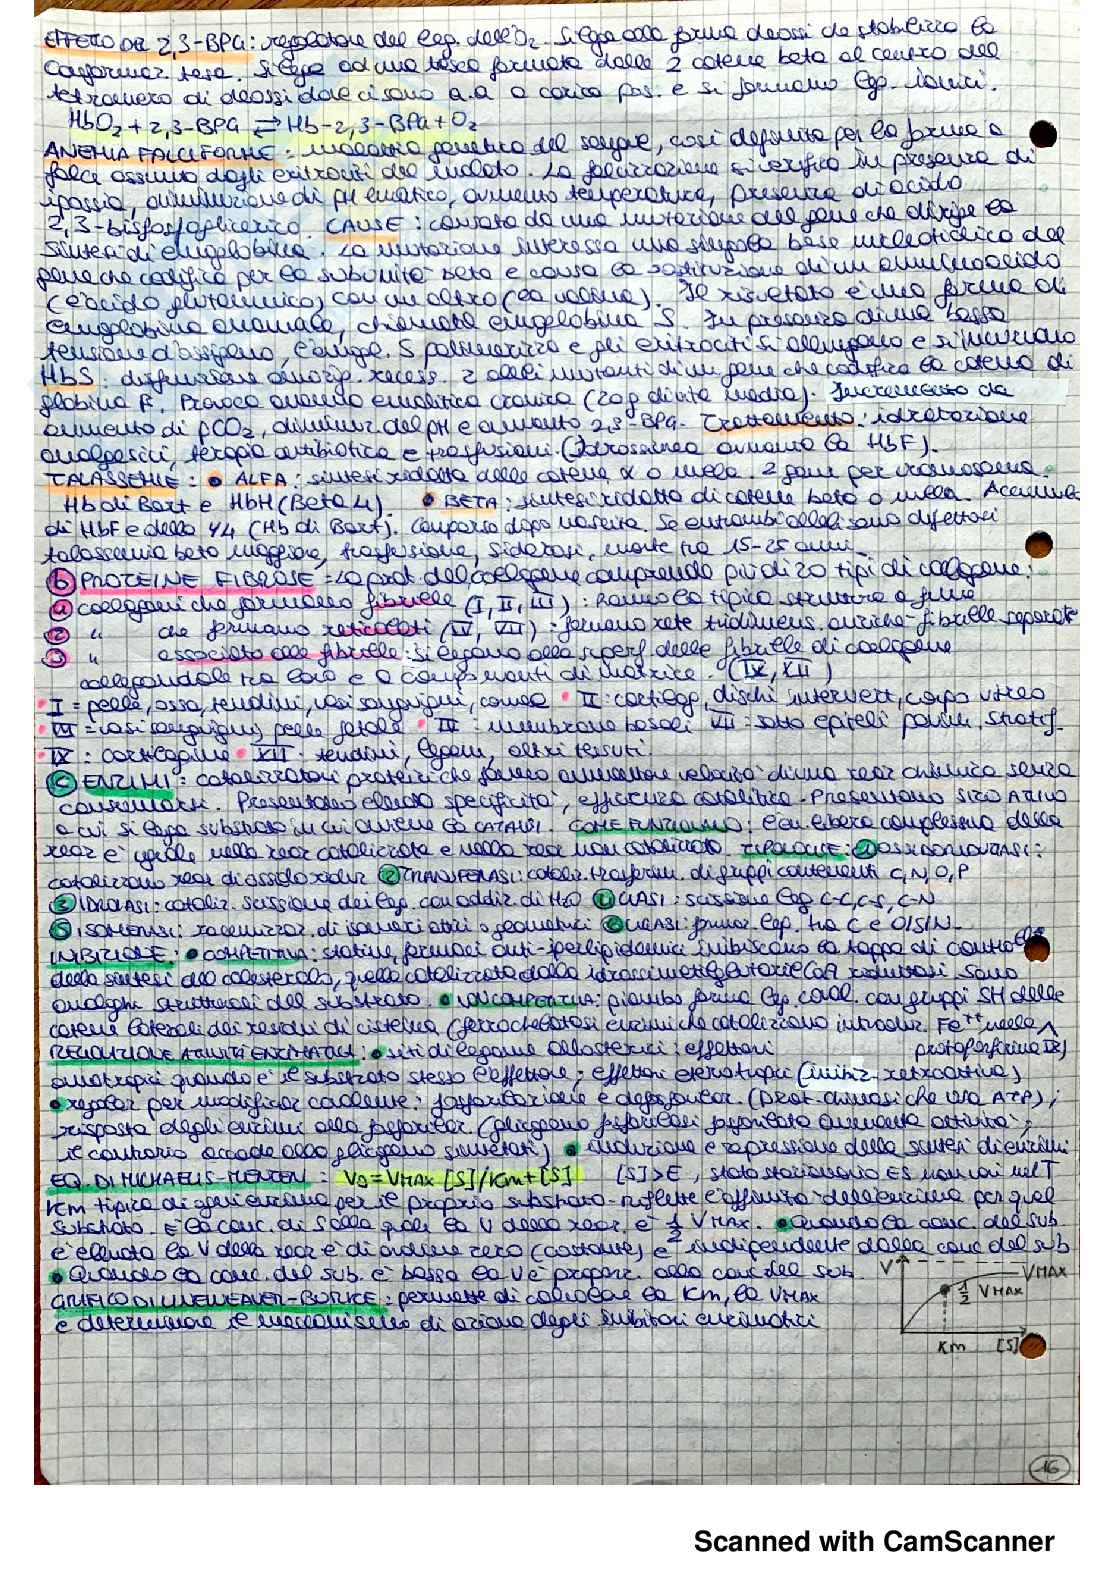 EFFETTO DEL 2,3-BPG: regolatore del leg. dell'O2. Si lega alla forma deossi che stabilizza la
conformaz. tesa. Si lega ad una tasca formata dalle 2 catene beta al centro del
tetramero di deossi dove ci sono a.a a carica pos. e si formano leg. ionici.
HbO2 + 2,3-BPG ⇄ Hb-2,3-BPG + O2
ANEMIA FALCIFORME: malattia genetica del sangue, così definita per la forma a
falci assunta dagli eritrociti del malato. La falcizzazione si verifica in presenza di
ipossia, diminuzione di pH ematico, aumento temperatura, presenza di acido
2,3-bisfosfoglicerico. CAUSE: causata da una mutazione del gene che dirige la
sintesi di emoglobina. La mutazione interessa una singola base nucleotidica del
gene che codifica per la subunità beta e causa la sostituzione di un amminoacido
(l'acido glutammico) con un altro (la valina). Il risultato è una forma di
emoglobina anomala, chiamata emoglobina S. In presenza di una bassa
tensione d'ossigeno, l'emogl. S polimerizza e gli eritrociti si allungano e si incurvano
HbS: disfunzione autorig. recess. 2 alleli mutanti di un gene che codifica la catena di
globina β. Provoca anemia emolitica cronica (20g di vita media). Incremento da
aumento di pCO2, diminuz. del pH e aumento 2,3-BPG. Trattamento: idratazione
analgesici, terapia antibiotica e trasfusioni. (Idrossiurea aumenta la HbF).
TALASSEMIE: • ALFA: sintesi ridotta delle catene α o nulla. 2 geni per cromosoma.
Hb di Bart e HbH (Beta 4). • BETA: sintesi ridotta di catene beta o nulla. Accumulo
di HbF e della γ4 (Hb di Bart). Comparsa dopo nascita. Se entrambi alleli sono difettosi
talassemia beta maggiore, trasfusione, siderosi, morte tra 15-25 anni.
b PROTEINE FIBROSE = La prot. del collagene comprende più di 20 tipi di collagene:
① collageni che formano fibrille (I, II, III): hanno la tipica struttura a fune
② " che formano reticolati (IV, VII): formano rete tridimens. anziché fibrille separate
③ " associato alle fibrille: si legano alla superf. delle fibrille di collagene
collegandole tra loro e a componenti di matrice. (IX, XII)
• I = pelle, ossa, tendini, vasi sanguigni, cornea • II: cartilag, dischi intervert, corpo vitreo
• III = vasi sanguigni, pelle fetale • IV: membrane basali VII: sotto epiteli pavim. stratif.
• IX: cartilagine • XII: tendini, legam, altri tessuti.
c ENZIMI: catalizzatori proteici che fanno aumentare velocità di una reaz chimica senza
consumarsi. Presentano elevata specificità, efficienza catalitica. Presentano SITO ATTIVO
a cui si lega substrato in cui avviene la CATALISI. COME FUNZIONANO: l'en. libera complessiva della
reaz è uguale nella reaz catalizzata e nella reaz non catalizzata. TIPOLOGIE: ① OSSIDORIDUTTASI:
catalizzano reaz di ossidoriduz ② TRANSFERASI: cataliz. trasferim. di gruppi contenenti C, N, O, P
③ IDROLASI: cataliz. scissione dei leg. con addiz. di H2O ④ LIASI: scissione leg C-C, C-S, C-N
⑤ ISOMERASI: racemizzaz. di isomeri ottici o geometrici ⑥ LIGASI: formaz. leg. tra C e O/S/N.
INIBIZIONE: • COMPETITIVA: statine, farmaci anti-iperlipidemici inibiscono la tappa di controllo
della sintesi del colesterolo, quella catalizzata dalla idrossimetilglutarile CoA reduttasi. Sono
analoghi strutturali del substrato. • NON COMPETITIVA: piombo forma leg. coval. con gruppi SH delle
catene laterali dei residui di cisteina (ferrochelatasi enzimi che catalizzano introduz. Fe++ nella
protoporfirina IX)
REGOLAZIONE ATTIVITÀ ENZIMATICA: • siti di legame allosterici: effettori
omotropici quando è il substrato stesso l'effettore; effettori eterotropici (inibiz. retroattiva)
• regolaz per modificaz covalente: fosforilazione e defosforilaz. (prot. chinasi che usa ATP);
risposta degli enzimi alla fosforilaz. (glicogeno fosforilasi fosforilata aumenta attività;
il contrario accade alla glicogeno sintetasi) • induzione e repressione della sintesi di enzimi
EQ. DI MICHAELIS-MENTEN: V0 = VMAX [S]/Km+[S] [S]>E, stato stazionario ES non vari nel T
Km tipica di ogni enzima per il proprio substrato - riflette l'affinità dell'enzima per quel
substrato. È la conc. di S alla quale la V della reaz. è ½ VMAX. • Quando la conc. del sub
è elevata la V della reaz è di ordine zero (costante) e indipendente dalla conc del sub
• Quando la conc. del sub. è bassa la V è proporz. alla conc del sub.
GRAFICO DI LINEWEAVER-BURKE: permette di calcolare la Km, la VMAX
e determinare il meccanismo di azione degli inibitori enzimatici
V VMAX
½ VMAX
Km [S]
16
Scanned with CamScanner